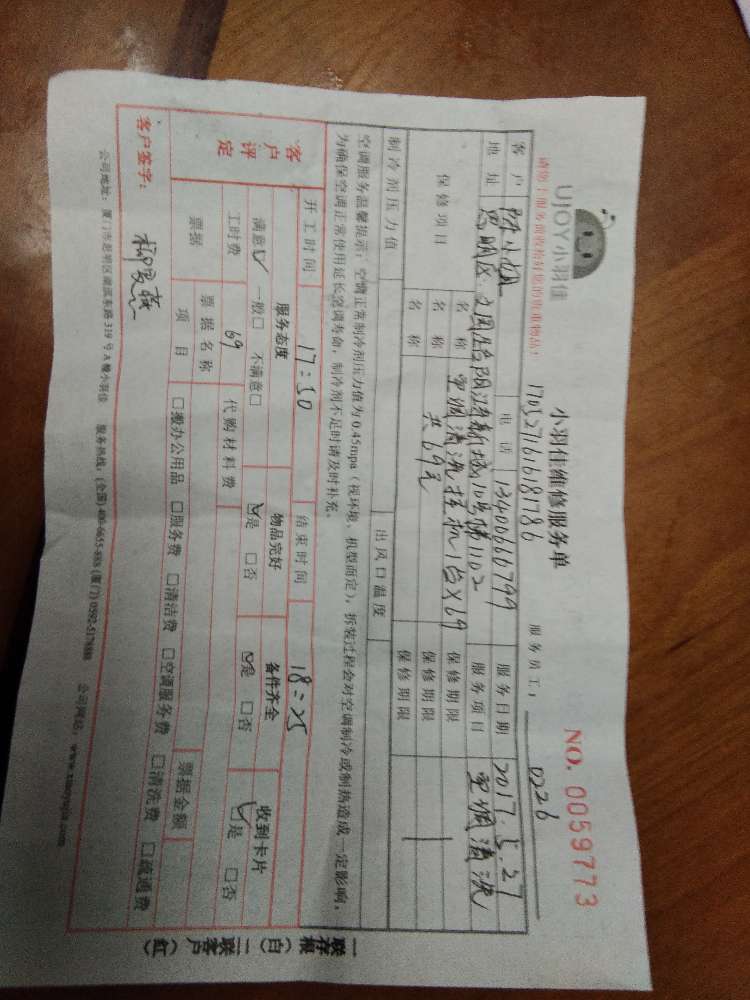 UJOY小羽佳
小羽佳维修服务单
NO. 0059773
170527161618786
服务员工： 0226
请您于服务前收拾好您的贵重物品！
客户 陈小姐 电话 13400666799 服务日期 2017.5.27
地址 思明区 阳鸿新城10号楼1102 服务项目 空调清洗
保修项目 名称 空调清洗挂机1台X69 保修期限
名称 共69元 保修期限
名称 保修期限
制冷剂压力值 出风口温度
空调服务温馨提示：空调正常制冷剂压力值为0.45mpa（视环境、机型而定），拆装过程会对空调制冷或制热造成一定影响，
为确保空调正常使用延长空调寿命，制冷剂不足时请及时补充。
开工时间 17:30 结束时间 18:25
客户评定 服务态度 物品完好 备件齐全 收到卡片
满意☑ 一般□ 不满意□ ☑是 □否 ☑是 □否 ☑是 □否
工时费 69 代购材料费
票据 票据名称 票据金额
项目 □搬办公用品 □服务费 □清洁费 □空调服务费 □清洗费 □疏通费
客户签字：
公司地址：厦门市思明区湖滨东路319号A幢小羽佳 服务热线：(全国) 400-6655-888 (厦门) 0592-5178888 公司网站：www.xiaoyujia.com
一联存根（白）二联客户（红）